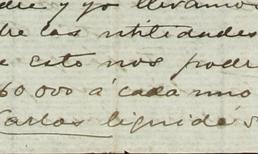 dre y yo llevamos
tre las utilidades
e esto nos podr
60.000 á cada uno
Carlos liquidé s